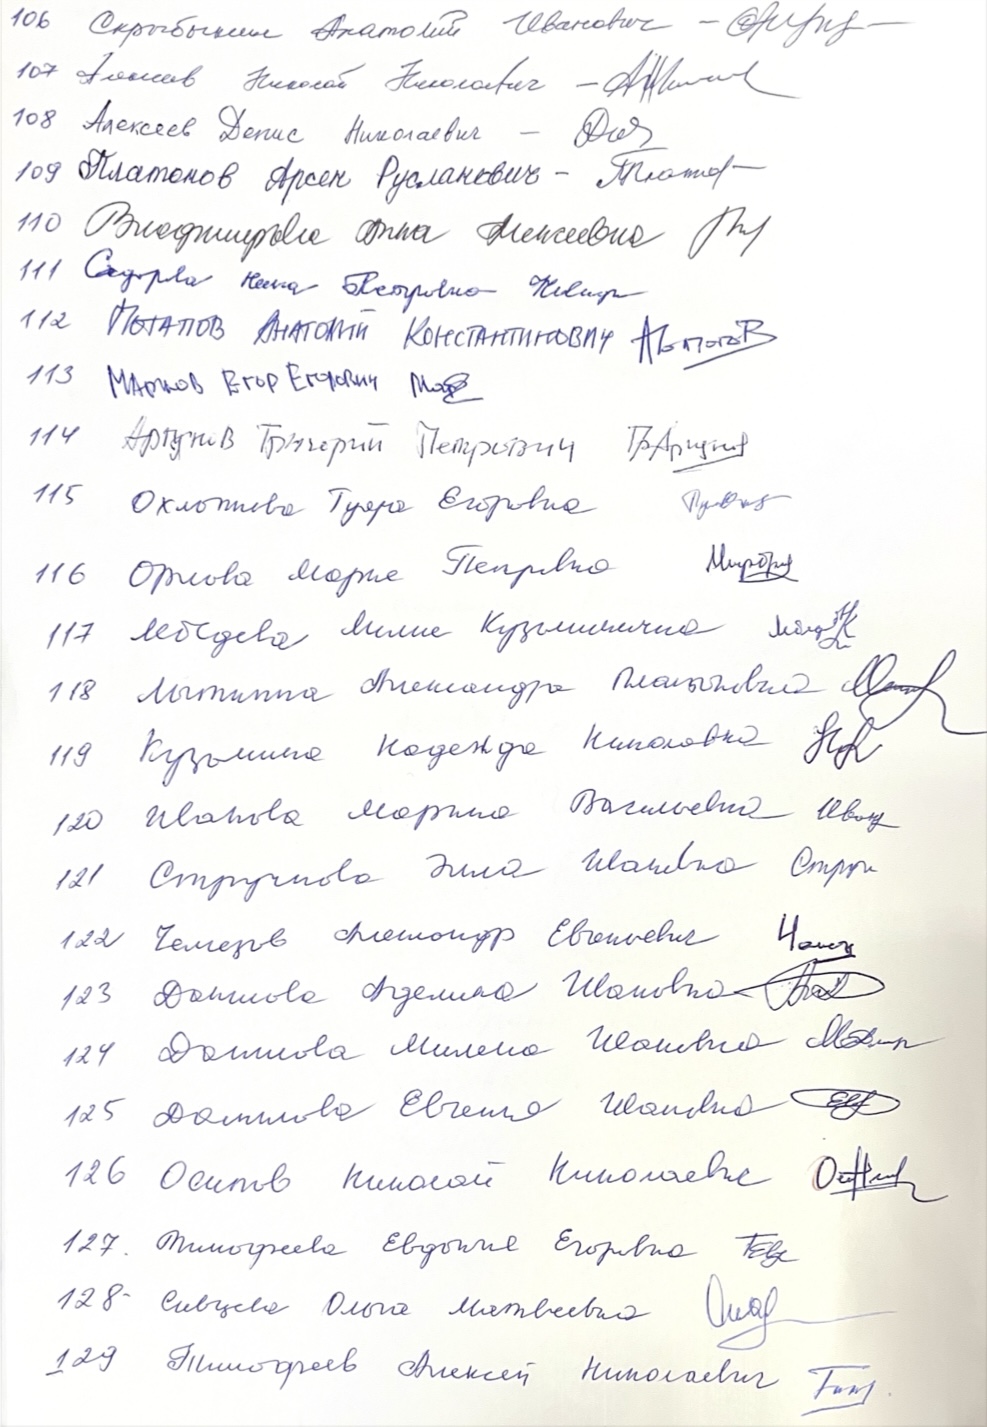 106 Скрыбыкин Анатолий Иванович –
107 Алексеев Николай Николаевич –
108 Алексеев Денис Николаевич –
109 Платонов Арсен Русланович –
110 Владимирова Анна Алексеевна
111 Сидорова Нина Петровна
112 ПОТАПОВ АНАТОЛИЙ КОНСТАНТИНОВИЧ
113 МАРКОВ ЕГОР ЕГОРОВИЧ
114 Аргунов Григорий Петрович
115 Охлопкова Туяра Егоровна
116 Орлова Мария Петровна
117 Лебедева Кузьминична
118 Лыткина Александра Платоновна
119 Кузьмина Надежда Николаевна
120 Иванова Марина Васильевна
121 Стручкова Ивановна
122 Чемезов Александр Евгеньевич
123 Данилова Аделина Ивановна
124 Данилова Милена Ивановна
125 Данилова Евгения Ивановна
126 Осипов Николай Николаевич
127. Тимофеева Евдокия Егоровна
128 Сивцева Ольга Матвеевна
129 Тимофеев Алексей Николаевич